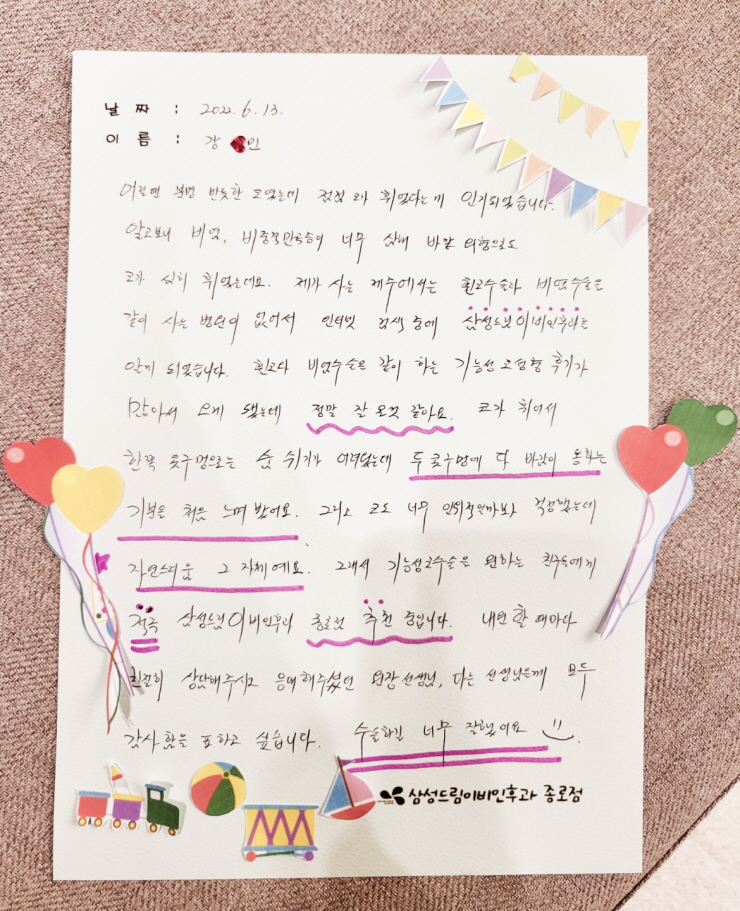 날 짜 : 2022. 6. 13.
이 름 : 강 민
어릴땐 분명 반듯한 코였는데 점점 코가 휘었다는게 인지되었습니다.
알고보니 비염, 비중격만곡증이 너무 심해 바깥 외형으로도
코가 심히 휘었는데요. 제가 사는 제주에서는 휜코수술과 비염수술은
같이 하는 병원이 없어서 인터넷 검색 중에 삼성드림이비인후과를
알게 되었습니다. 휜코와 비염수술을 같이 하는 기능성 코성형 후기가
많아서 오게 됐는데 정말 잘 온것 같아요. 코가 휘어서
한쪽 콧구멍으로는 숨 쉬기가 어려웠는데 두 콧구멍에 다 바람이 통하는
기분을 처음 느껴 봤어요. 그리고 코도 너무 인위적일까봐 걱정했는데
자연스러움 그 자체예요. 그래서 기능성코수술을 원하는 친구들에게
적극 삼성드림이비인후과 종로점 추천 중입니다. 내원 할 때마다
친절히 상담해주시고 응대해주셨던 원장선생님, 다른 선생님들께 모두
감사함을 표하고 싶습니다. 수술하길 너무 잘했어요
삼성드림이비인후과 종로점